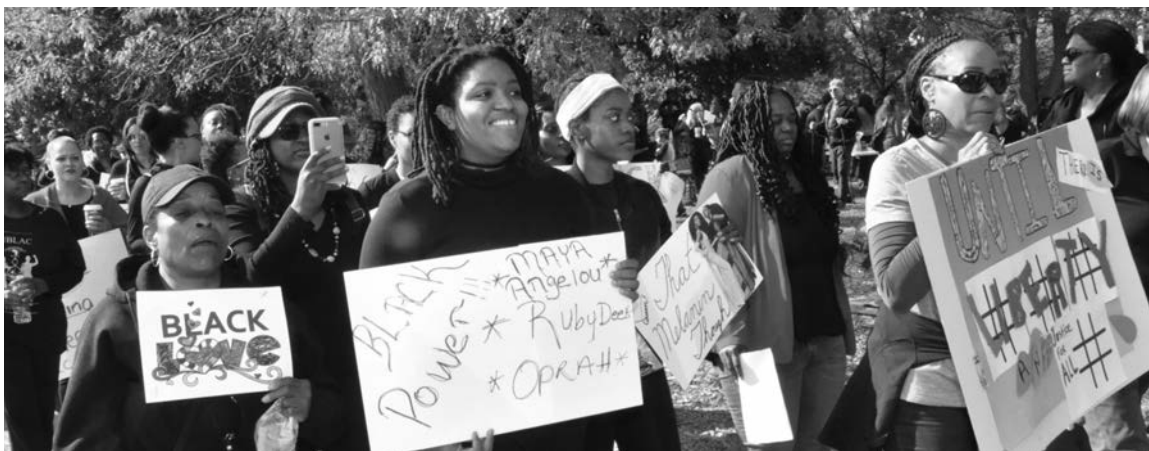 BLACK
LOVE
BLACK
Power!!!
*MAYA
Angelou*
* RubyDee*
*OPRAH*
That
Melanin
Though
UNTIL
THERE IS
LIBERTY
FOR
ALL